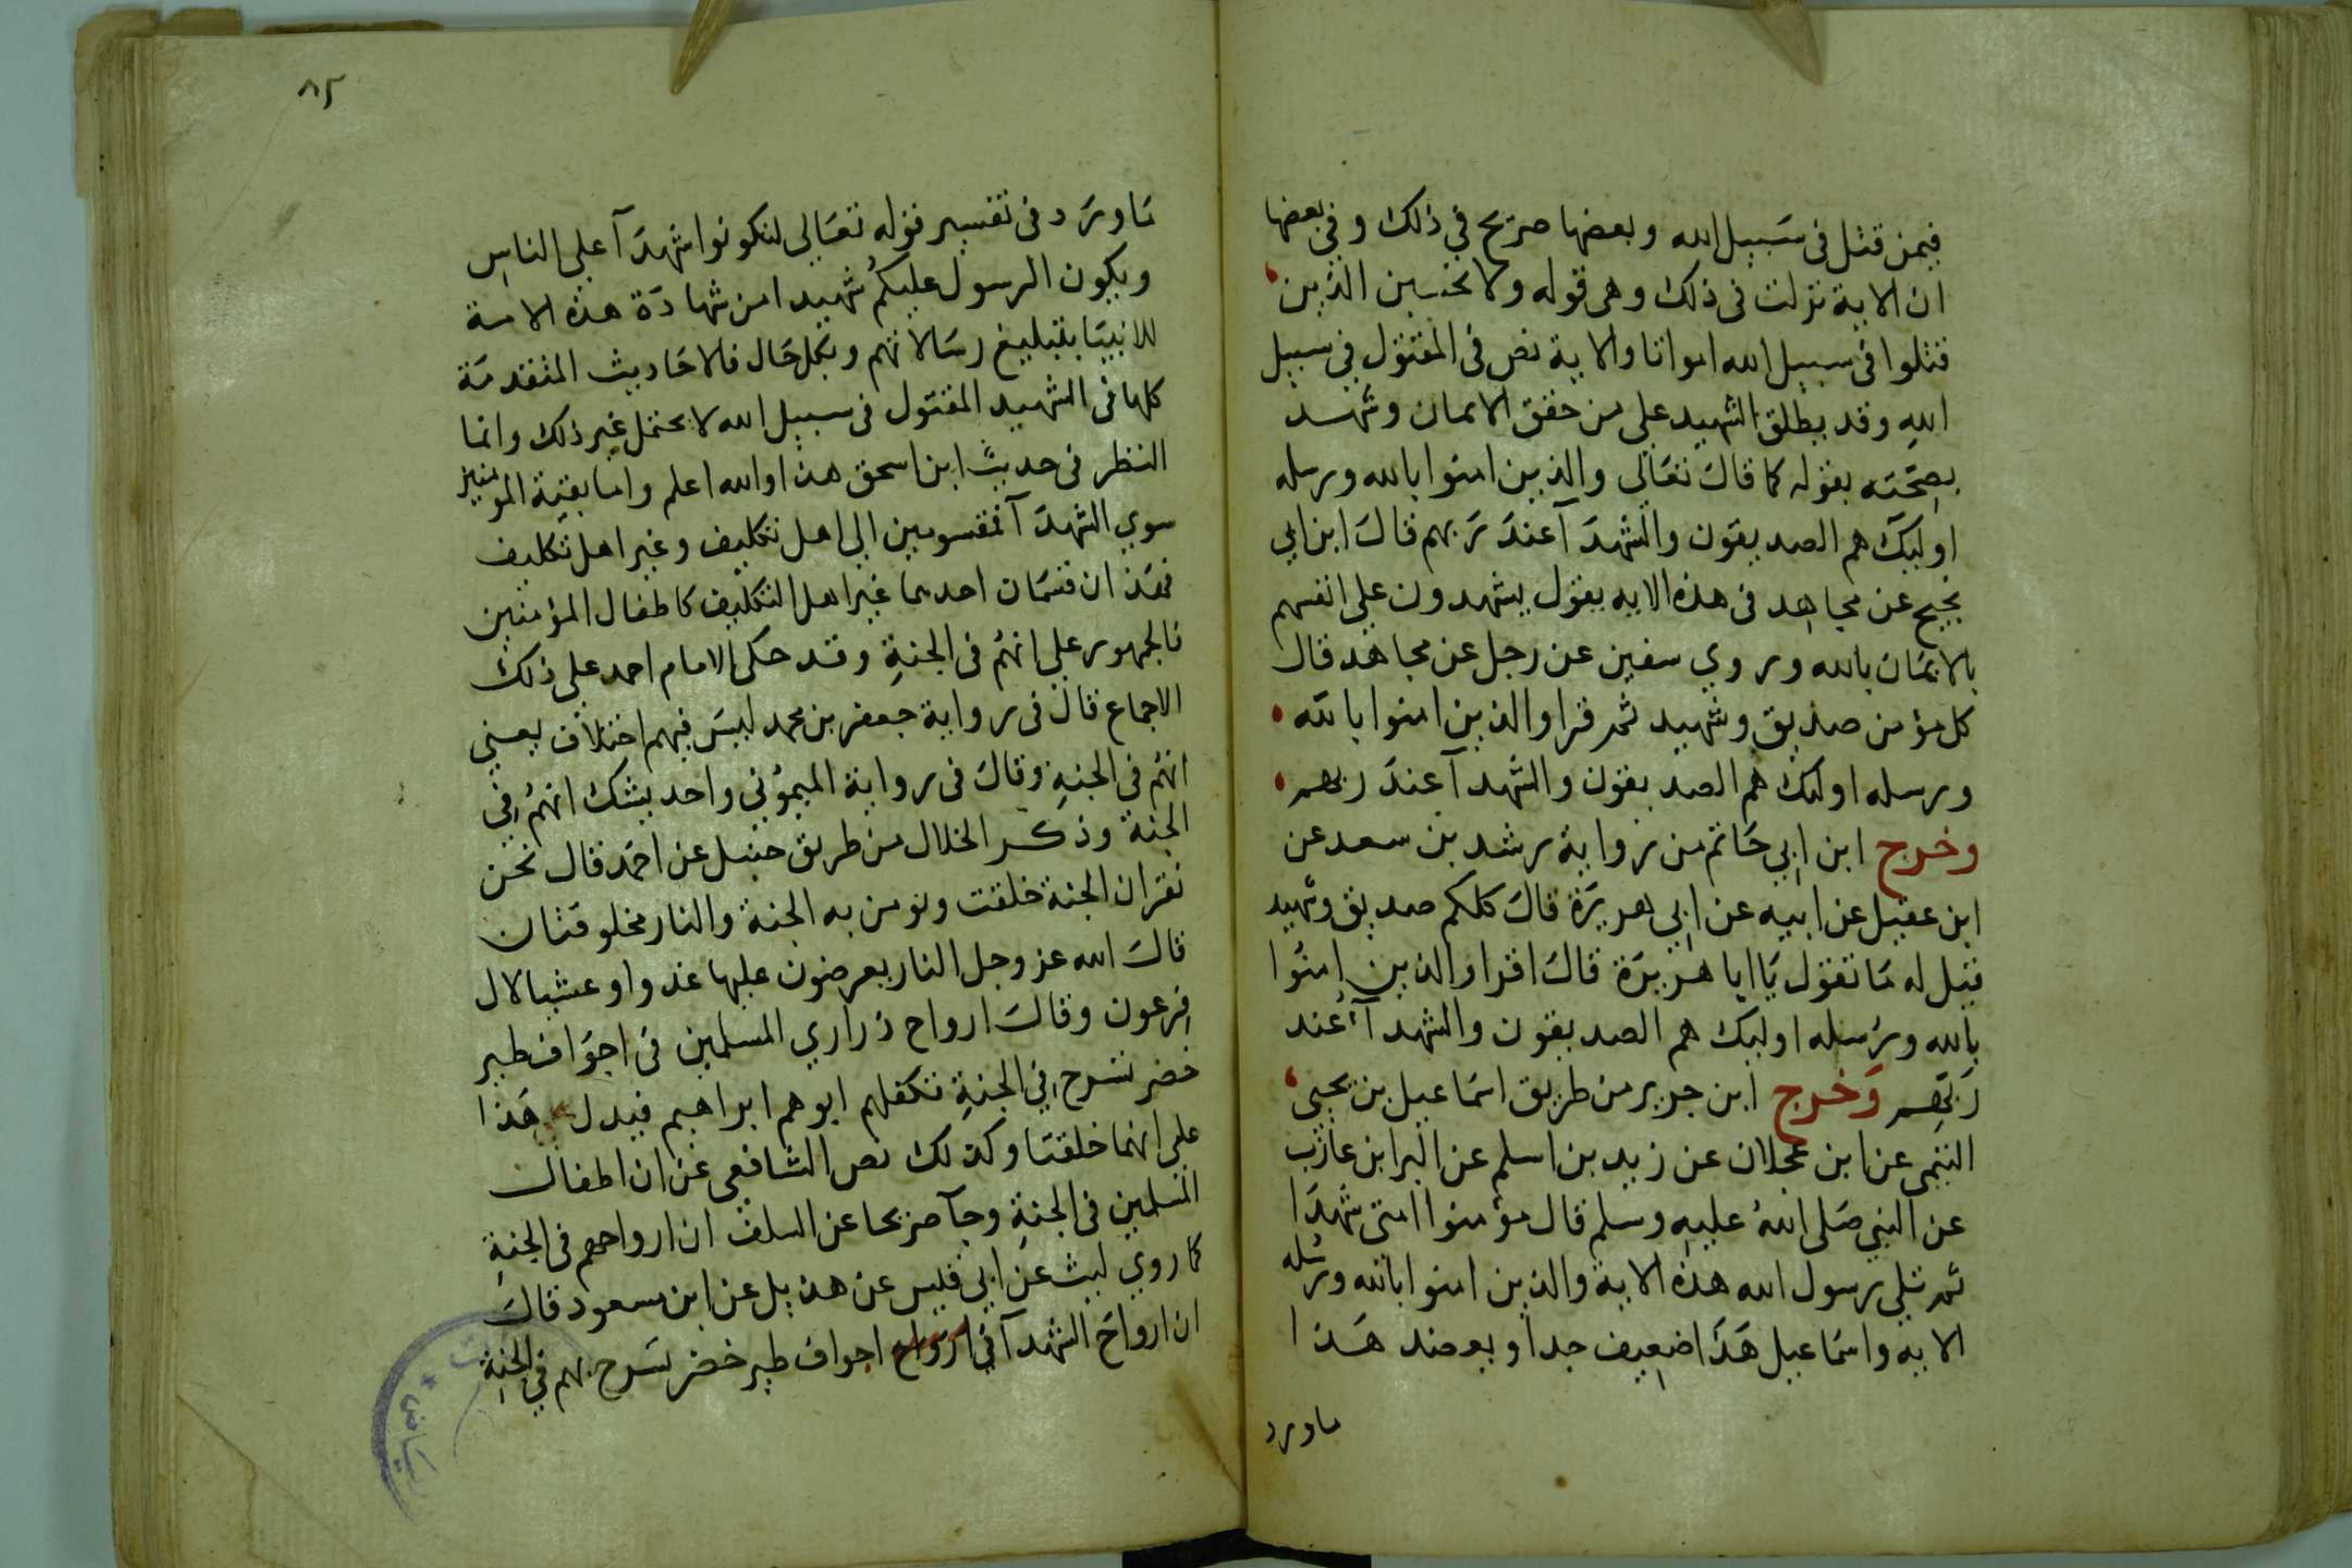 فيمن قتل فى سبيل الله وبعضها صريح في ذلك وفي بعضها
ان الاية نزلت فى ذلك وهى قوله ولا تحسبن الذين
قتلوا فى سبيل الله امواتا والاية نص فى المقتول في سبيل
الله وقد يطلق الشهيد على من حقق الايمان وشهد
بصحته بقوله كما قال تعالى والذين امنوا بالله ورسله
اوليك هم الصديقون والشهدآ عند ربهم قال ابن ابي
نجيح عن مجاهد فى هذه الايه يقول يشهدون على انفسهم
بالايمان بالله وروي سفين عن رجل عن مجاهد قال
كل مؤمن صديق وشهيد ثم قرا والذين امنوا بالله
ورسله اوليك هم الصديقون والشهدآ عند ربهم
وخرج ابن ابي حاتم من رواية رشد بن سعد عن
ابن عقيل عن ابيه عن ابي هريرة قال كلكم صديق وشهيد
قيل له ما تقول يا ابا هريرة قال اقرا والذين امنوا
بالله ورسله اوليك هم الصديقون والشهدآ عند
ربهم وخرج ابن جرير من طريق اسماعيل بن يحيى
التيمى عن ابن عجلان عن زيد بن اسلم عن البرا بن عازب
عن النبي صلى الله عليه وسلم قال مؤمنوا امتى شهدا
ثم تلى رسول الله هذه الاية والذين امنوا بالله ورسله
الايه واسماعيل هذا ضعيف جدا وبعضد هذا
ماورد
٨٢
ماورد فى تفسير قوله تعالى لتكونوا شهدآ على الناس
ويكون الرسول عليكم شهيدا من شهادة هذه الامة
للانبيا بتبليغ رسالاتهم وبكل حال فالاحاديث المتقدمة
كلها فى الشهيد المقتول فى سبيل الله لا يحتمل غير ذلك وانما
النظر فى حديث ابن اسحق هذا والله اعلم واما بقية المومنين
سوي الشهدآ فمقسومين الى اهل تكليف وغير اهل تكليف
فهذان قسمان احدهما غير اهل التكليف كاطفال المؤمنين
فالجمهور على انهم فى الجنة وقد حكى الامام احمد على ذلك
الاجماع قال فى رواية جعفر بن محمد ليس فيهم اختلاف يعني
انهم فى الجنة وقال فى رواية الميموني واحد يشك انهم في
الجنة وذكر الخلال من طريق حنبل عن احمد قال نحن
نقر ان الجنة خلقت ونومن به الجنة والنار مخلوقتان
قال الله عز وجل النار يعرضون عليها غدوا وعشيا لال
فرعون وقال ارواح ذراري المسلمين فى اجواف طير
خضر تسرح في الجنة تكفلهم ابوهم ابراهيم فيدل هذا
على انهما خلقتا وكذلك نص الشافعى عن ان اطفال
المسلمين فى الجنة وجآ صريحا عن السلف ان ارواحهم فى الجنة
كما روي ليث عن ابي قيس عن هذيل عن ابن مسعود قال
ان ارواح الشهدآ فى ارواح اجواف طير خضر تسرح بهم في الجنة